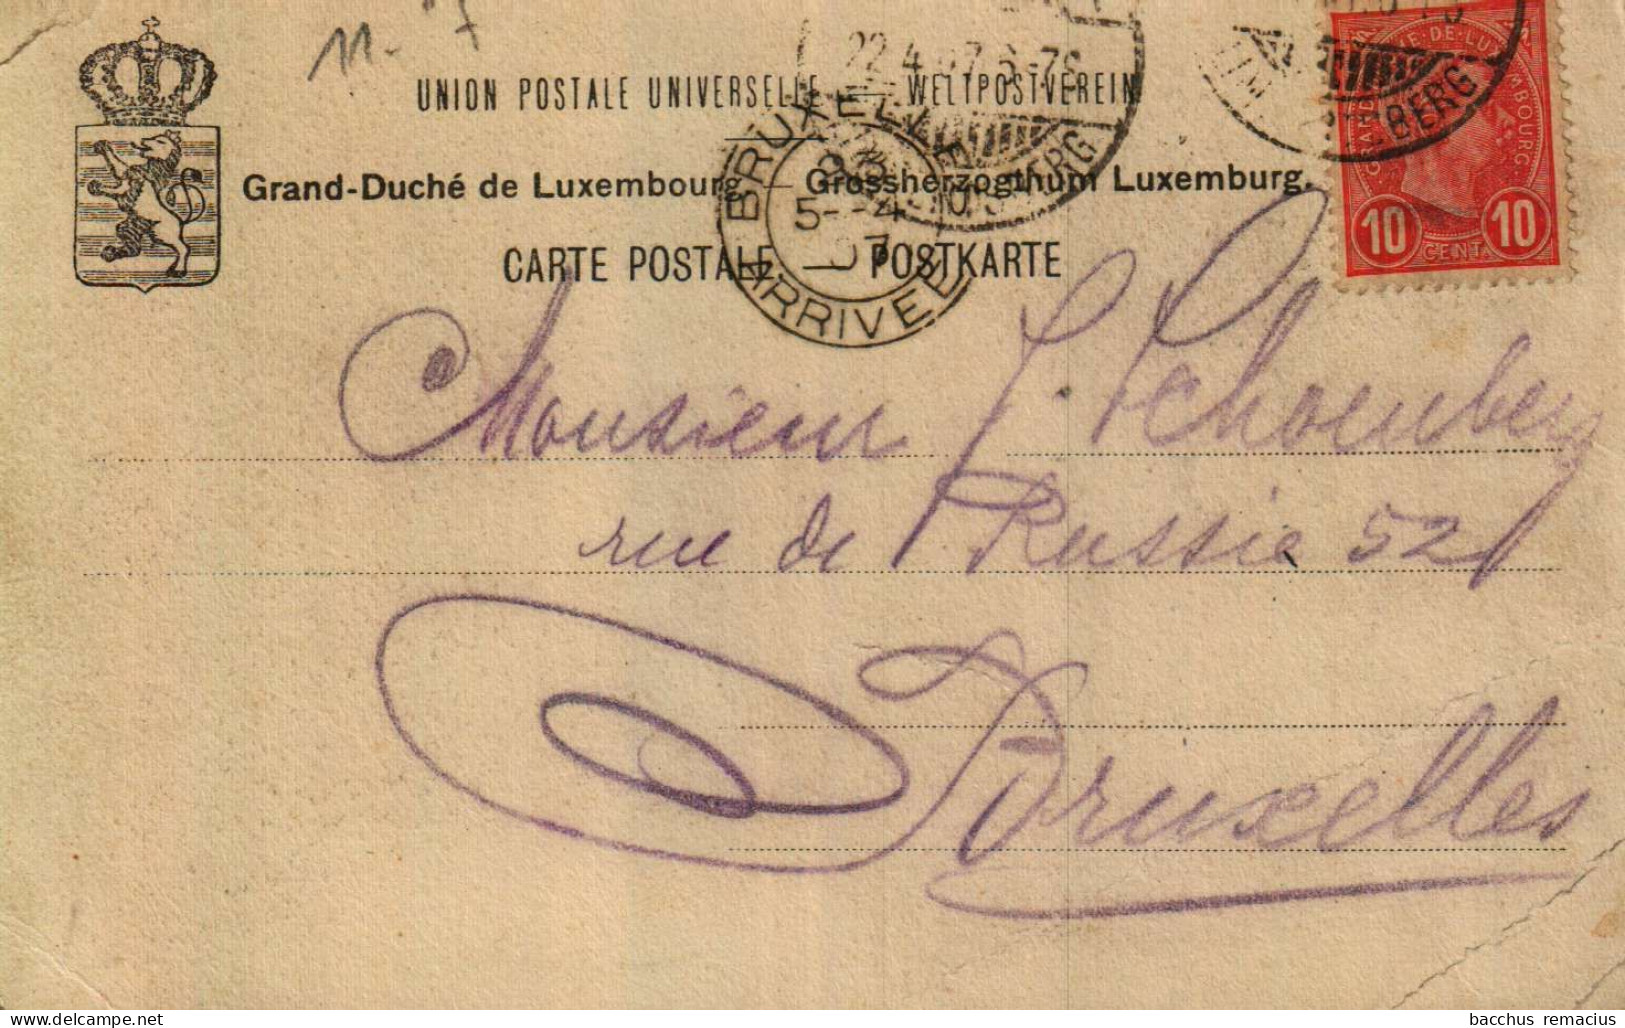 11-
UNION POSTALE UNIVERSELLE — WELTPOSTVEREIN
Grand-Duché de Luxembourg — Grossherzogthum Luxemburg.
CARTE POSTALE POSTKARTE
BRUXELLES
5--4
ARRIVEE
BERG
GRAND DE LUXEMBOURG
10 CENT. 10
Monsieur J. Schoenberg
rue de Russie 52
Bruxelles
bacchus remacius